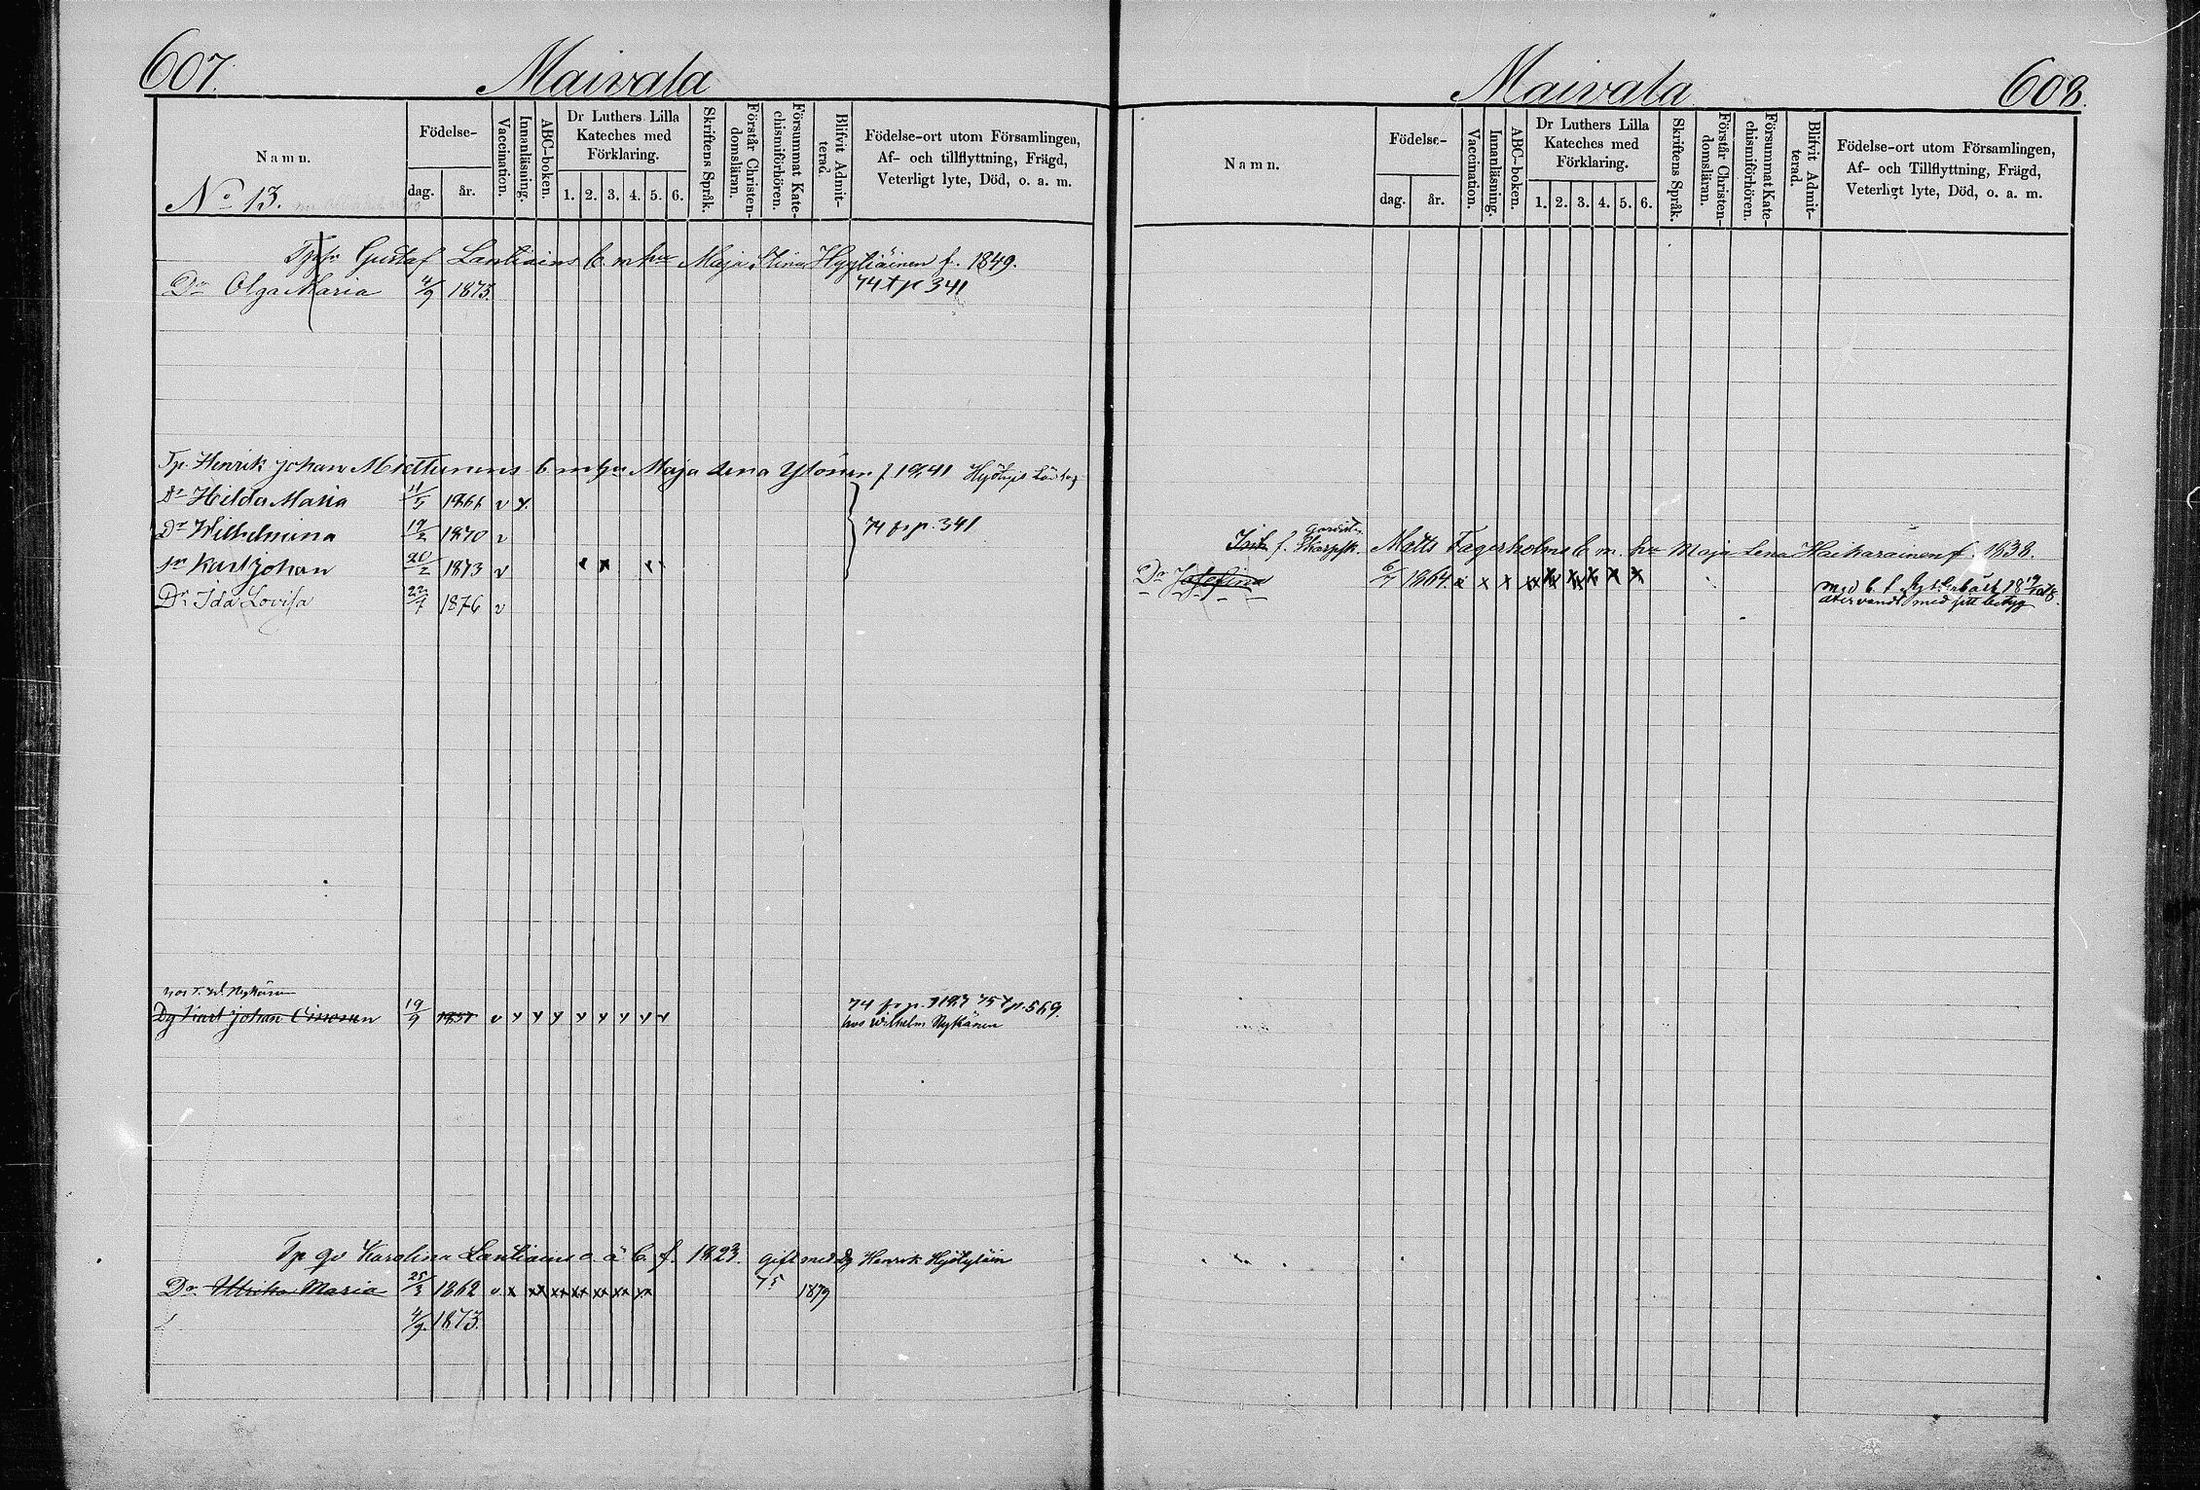 607.
Maivala
Namn.
Födelse-
dag.
år.
Vaccination.
Innanläsning.
ABC-boken.
Dr Luthers Lilla
Kateches med
Förklaring.
1. 2. 3. 4. 5. 6.
Skriftens Språk.
Förstår Christen-
domsläran.
Försummat Kate-
chismiförhören.
Blifvit Admit-
terad.
Födelse-ort utom Församlingen,
Af- och tillflyttning, Frägd,
Veterligt lyte, Död, o. a. m.
No 13.
Gustaf Lantiains b. m hu Maja Stina Hyytiäinen f. 1849.
Dr Olga Maria 4/9 1873. 74 t p 341
Tp. Henrik Johan Miettunens b m hu Maja Lena Ylönen f. 1841
Dr Hilda Maria 11/5 1866 v x
Dr Wilhelmina 19/2 1870 v 74 fr p. 341
Sn Karl Johan 20/2 1873 v
Dr Ida Lovisa 22/7 1876 v
hos T. W. Nykänen
Dg Karl Johan 19/9 1857 v 74 fr p. 75 t p. 569.
hos Wilhelm Nykänen
Tp Karolina Lantiains o. ä. b. f. 1823. gift med Dg Henrik
75
Dr Ulrika Maria 25/3 1862 v x xx xx xx xx xx xx 1879
4/9. 1873.
Maivala
608.
Namn.
Födelse-
dag.
år.
Vaccination.
Innanläsning.
ABC-boken.
Dr Luthers Lilla
Kateches med
Förklaring.
1. 2. 3. 4. 5. 6.
Skriftens Språk.
Förstår Christen-
domsläran.
Försummat Kate-
chismiförhören.
Blifvit Admit-
terad.
Födelse-ort utom Församlingen,
Af- och Tillflyttning, Frägd,
Veterligt lyte, Död, o. a. m.
f. Skarpsk. Matts Fagerholms b m. hu Maja Lena Haikarainen f. 1838.
Dr Josefina 6/7 1864.
återvändt med sitt betyg